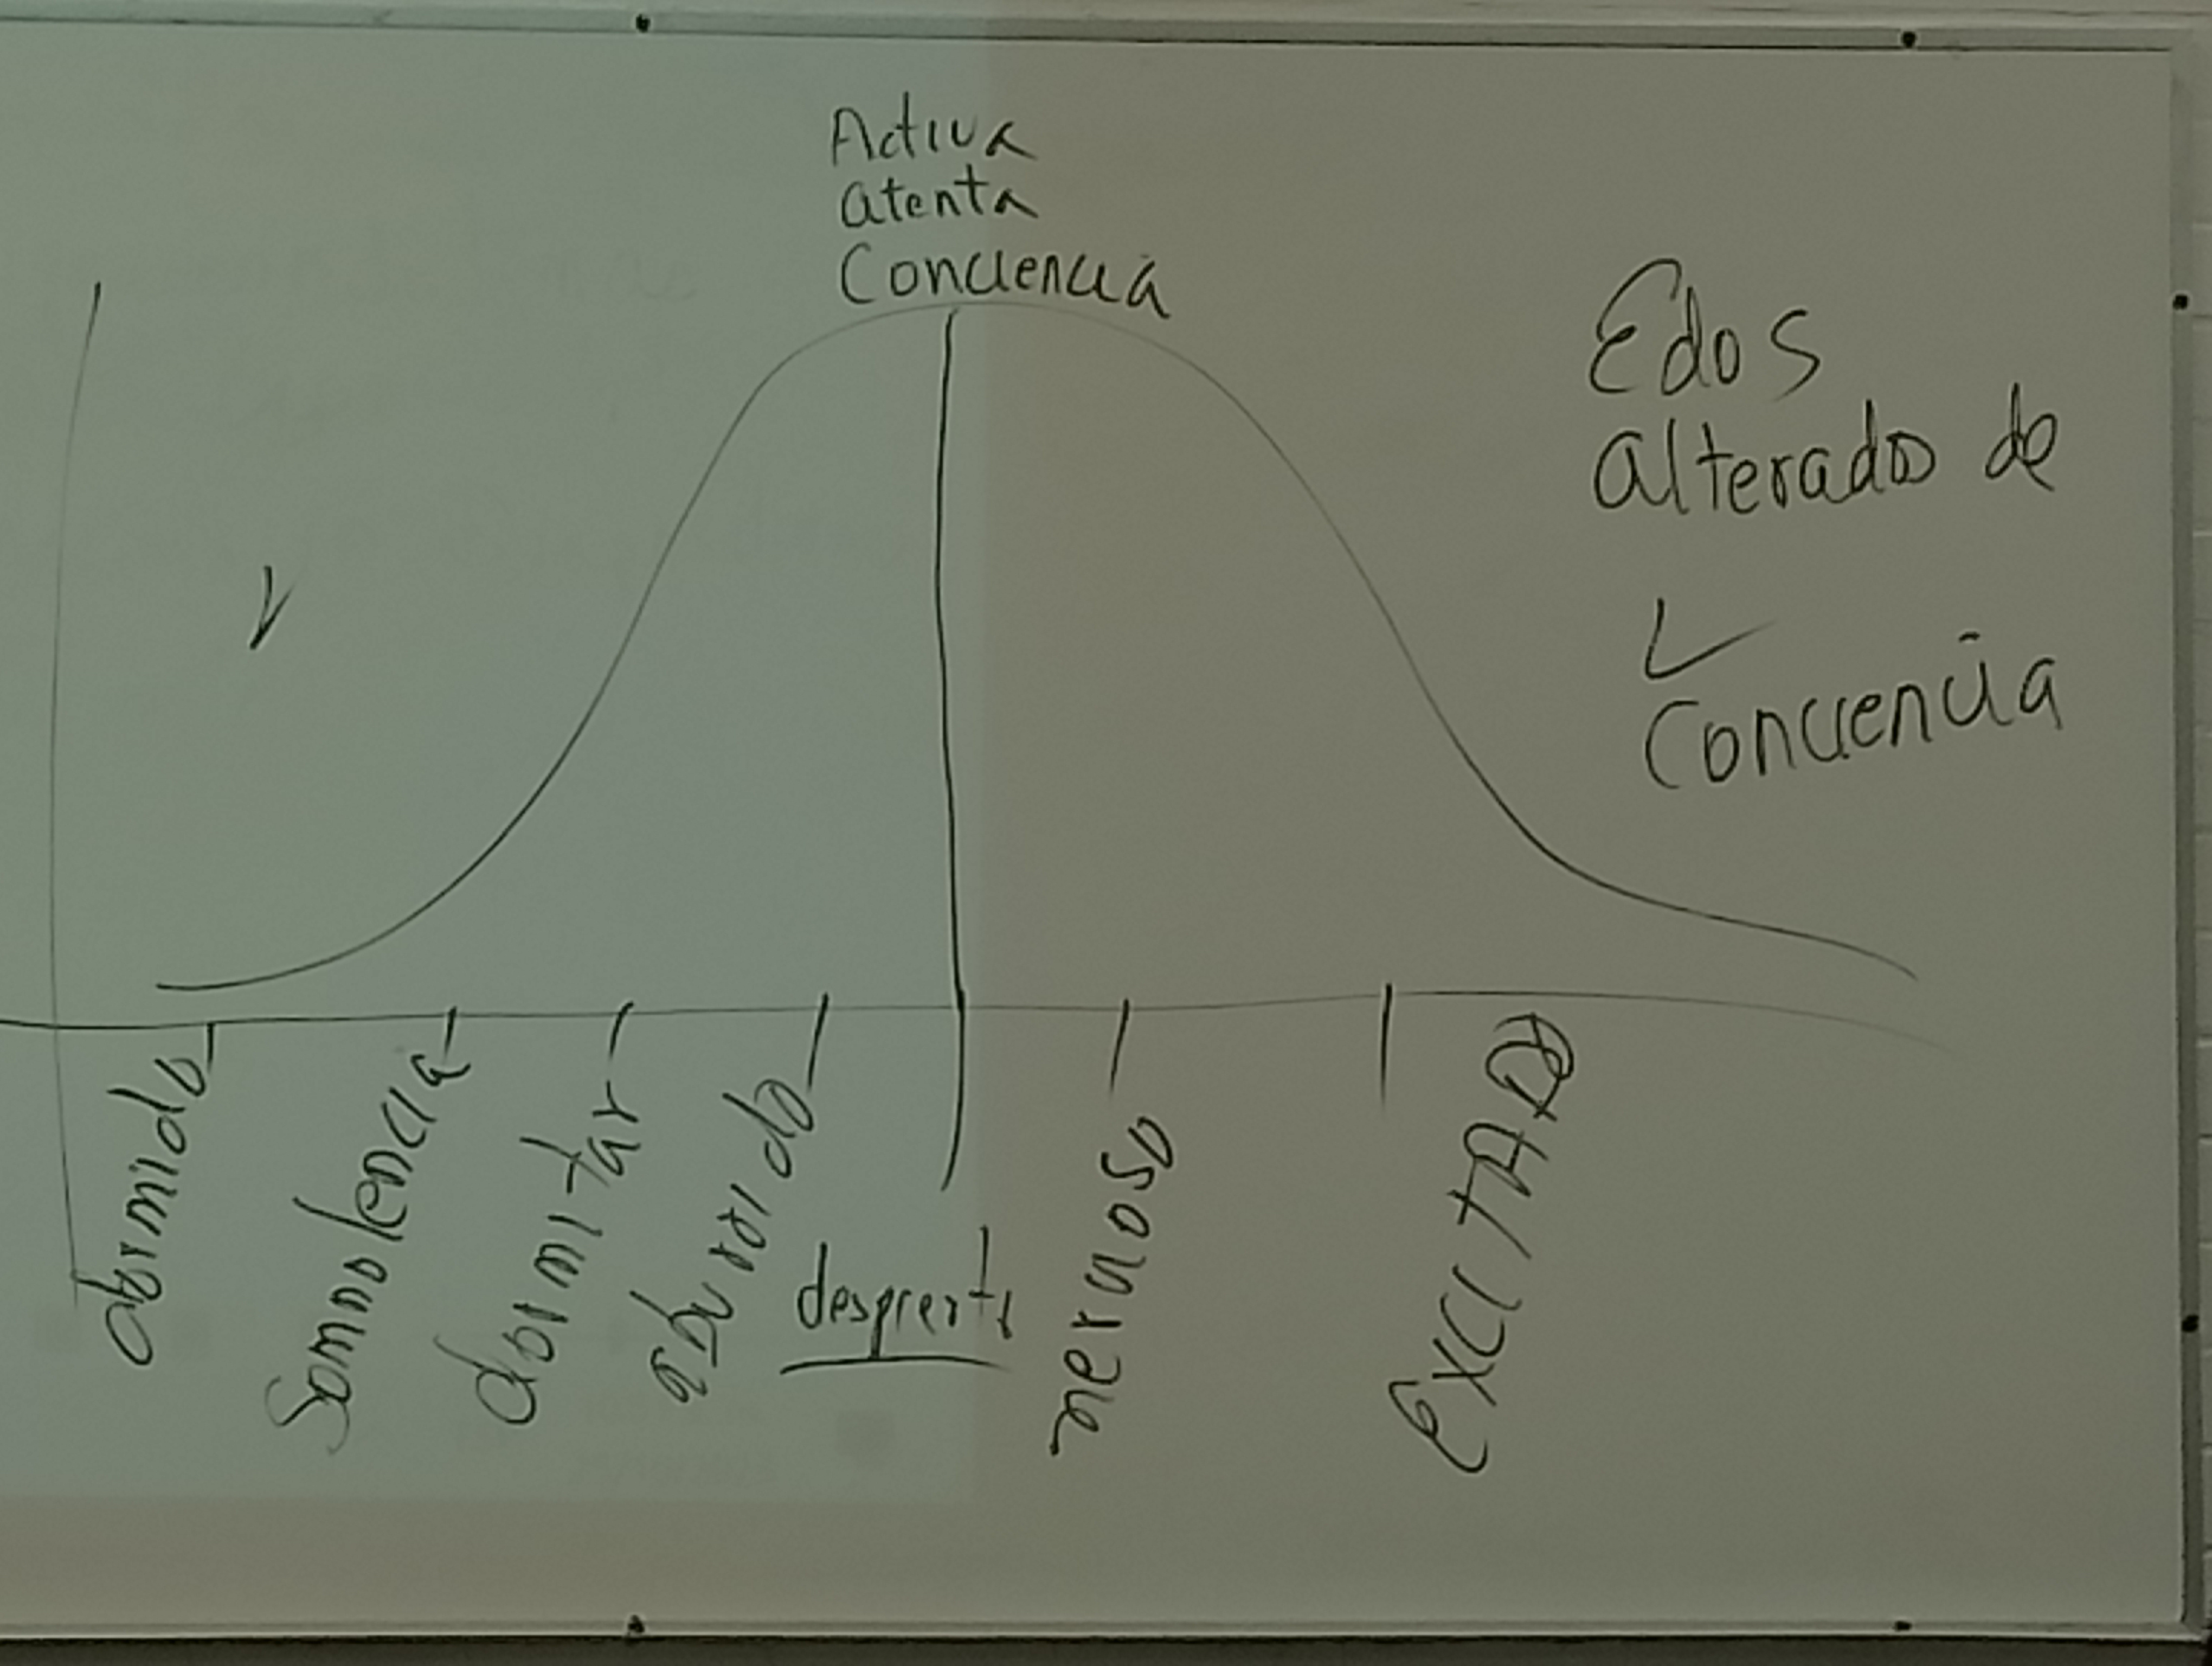 Activa
atenta
Conciencia
Edos
alterados de
Conciencia
dormido
Somnolencia
dormitar
aburrido
despierto
nervioso